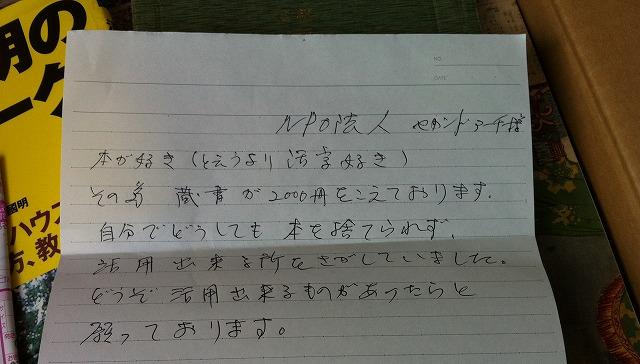 明の
ーク
國明
ハウス
方、教
NO.
DATE
NPO法人 セカンドアーチ様
本が好き(と云うより活字好き)
その為 蔵書が2000冊をこえております。
自分でどうしても本を捨てられず、
活用出来る所をさがしていました。
どうぞ活用出来るものがあったらと
願っております。